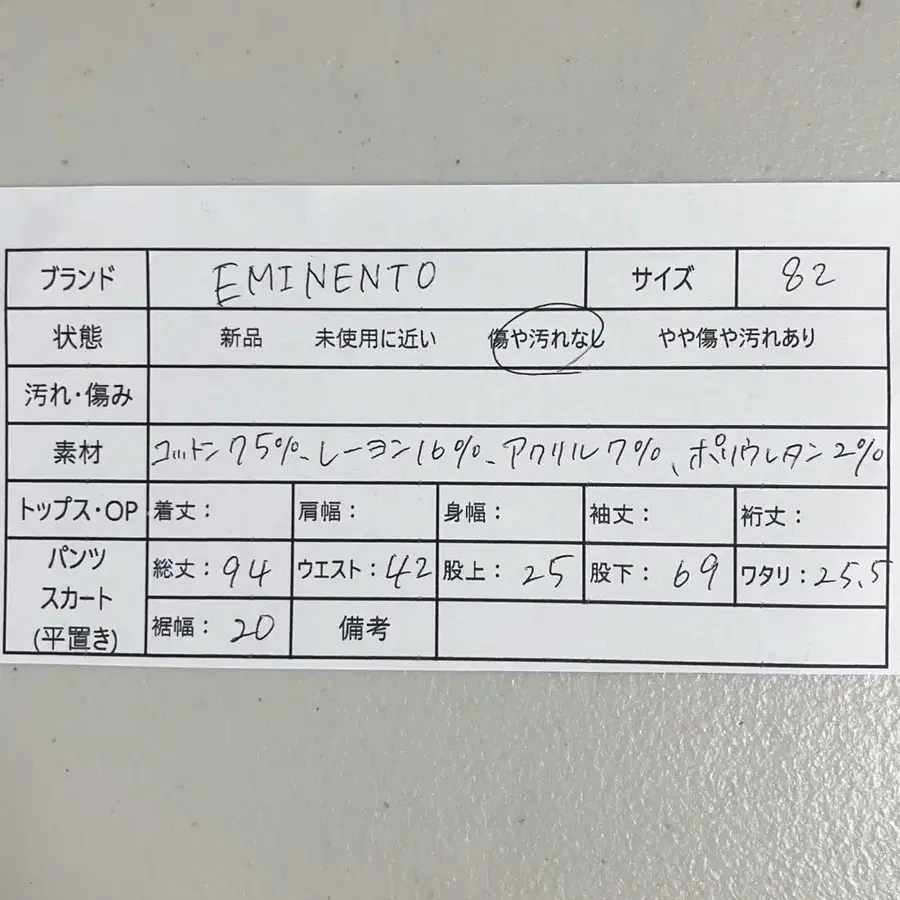 ブランド EMINENTO サイズ 82
状態 新品 未使用に近い 傷や汚れなし やや傷や汚れあり
汚れ・傷み
素材 コットン75%、レーヨン16%、アクリル7%、ポリウレタン2%
トップス・OP 着丈: 肩幅: 身幅: 袖丈: 裄丈:
パンツ
スカート
(平置き)
総丈:94 ウエスト:42 股上:25 股下:69 ワタリ:25.5
裾幅:20 備考